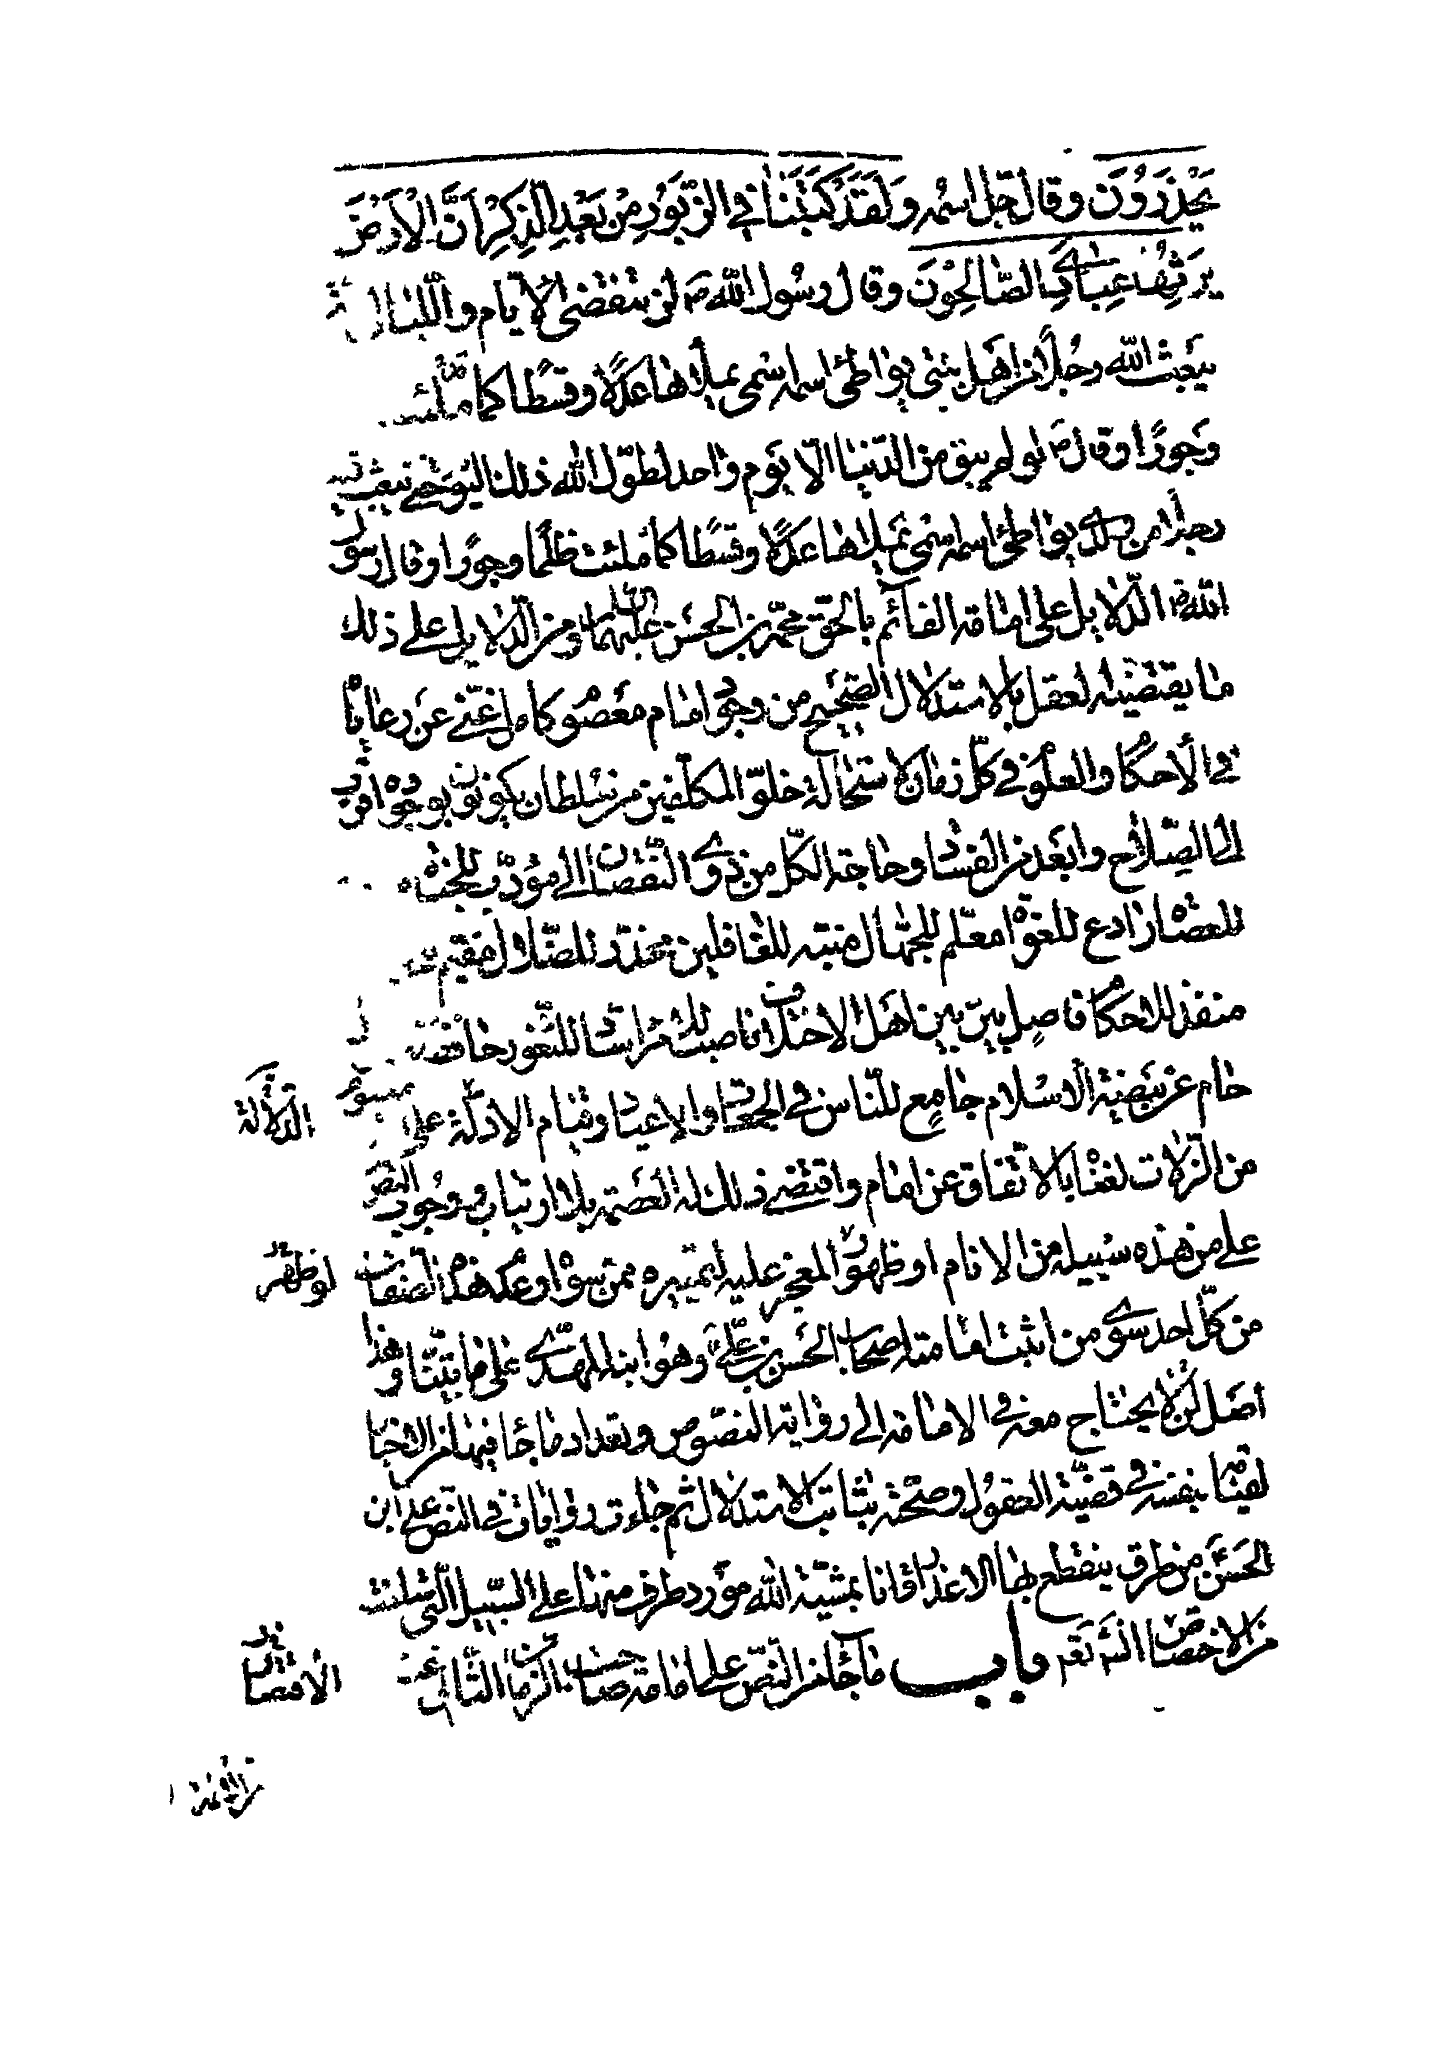 يَحْذَرُونَ وقال جل اسمه وَلَقَدْ كَتَبْنَا فِي الزَّبُورِ مِنْ بَعْدِ الذِّكْرِ أَنَّ الْأَرْضَ
يَرِثُهَا عِبَادِيَ الصَّالِحُونَ وقال رسول الله ص لن تنقضي الايام والليالي
يبعث الله رجلًا من اهل بيتي يواطئ اسمه اسمي يملاها عدلًا وقسطًا كما ملئت
وجورًا وقال ص لو لم يبق من الدنيا الّا يوم واحد لطوّل الله ذلك اليوم حتى يبعث فيه
رجلا من ولدي يواطئ اسمه اسمي يملاها عدلًا وقسطًا كما ملئت ظلمًا وجورًا وقال رسول
الله ص الدلايل على امامة القائم بالحق محمد بن الحسن عليهما ومن الدلايل على ذلك
ما يقتضيه العقل بالاستدلال الصّحيح من وجود امام معصوم كامل غني عن رعاياه
في الأحكام والعلوم في كلّ زمان لاستحالة خلوّ المكلّفين من سلطان يكونون بوجوده اقرب
الى الصّلاح وابعد من الفساد وحاجة الكلّ من ذوي النّقصان الى مؤدّب للجناة
للعصاة رادع للغواة معلّم للجهّال منبّه للغافلين محذّر للضّلال مقيم
منفذ للاحكام فاصل بين اهل الاختلاف ناصب للامراء ساد للثغور حافظ
حام عن بيضة الاسلام جامع للنّاس في الجمعات والاعياد وقيام الادلّة على
الدلالة
من الزلات لغناه بالاتّفاق عن امام واقتضى ذلك له العصمة بلا ارتياب ووجوب النص
على من هذه سبيله من الانام او ظهور المعجز عليه لتمييزه ممن سواه وعدم هذه الصفات
لو ظهر
من كلّ احد سوى من اثبت امامته اصحاب الحسن بن علي ع وهو ابنه المهديّ على ما بيّنّا وهذا
اصل لن يحتاج معه في الامامة الى رواية النصوص وتعداد ما جاء فيها من الاخبار
لقيامه بنفسه في قضيّة العقول وصحّته بثابت الاستدلال ثم جاءت روايات في النّص على ابن
الحسن من طرق ينقطع بها الاعذار وانا بمشيّة الله مورد طرف منها على السّبيل التي سلفت
من الاختصار ان شاء الله تعالى باب ما جاء من النصّ على امامة صاحب الزمان الثاني عشر
الاقتصار
من الأئمة